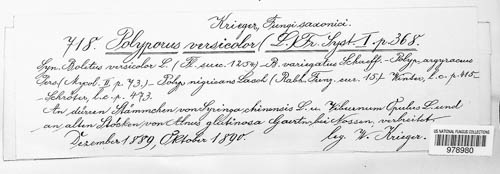 Krieger, Fungi saxonici.
718. Polyporus versicolor (L.) Fr. Syst. I. p. 368.
Syn. Boletus versicolor L. (Fl. suec. 1254) - B. variegatus Schaeff. - Polyp. argyraceus
Pers. (Mycol. II. p. 73.) - Polyp. nigricans Lasch (Rabh. Fung. eur. 15.) Winter, l. c. p. 415.
- Schröter, l. c. p. 473.
An dürren Stämmchen von Syringa chinensis L. u. Viburnum Opulus L. und
an alten Stöcken von Alnus glutinosa Gaertn. bei Nossen, verbreitet.
Dezember 1889, Oktober 1890. leg. W. Krieger.
US NATIONAL FUNGUS COLLECTIONS
978980